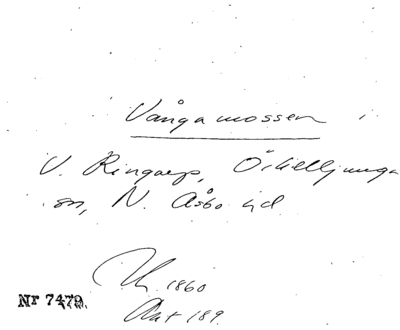 Vånga mossen
V. Ringarp, Örkelljunga
sn, N. Åsbo hd
1860
Akt 189.
Nr 7479.